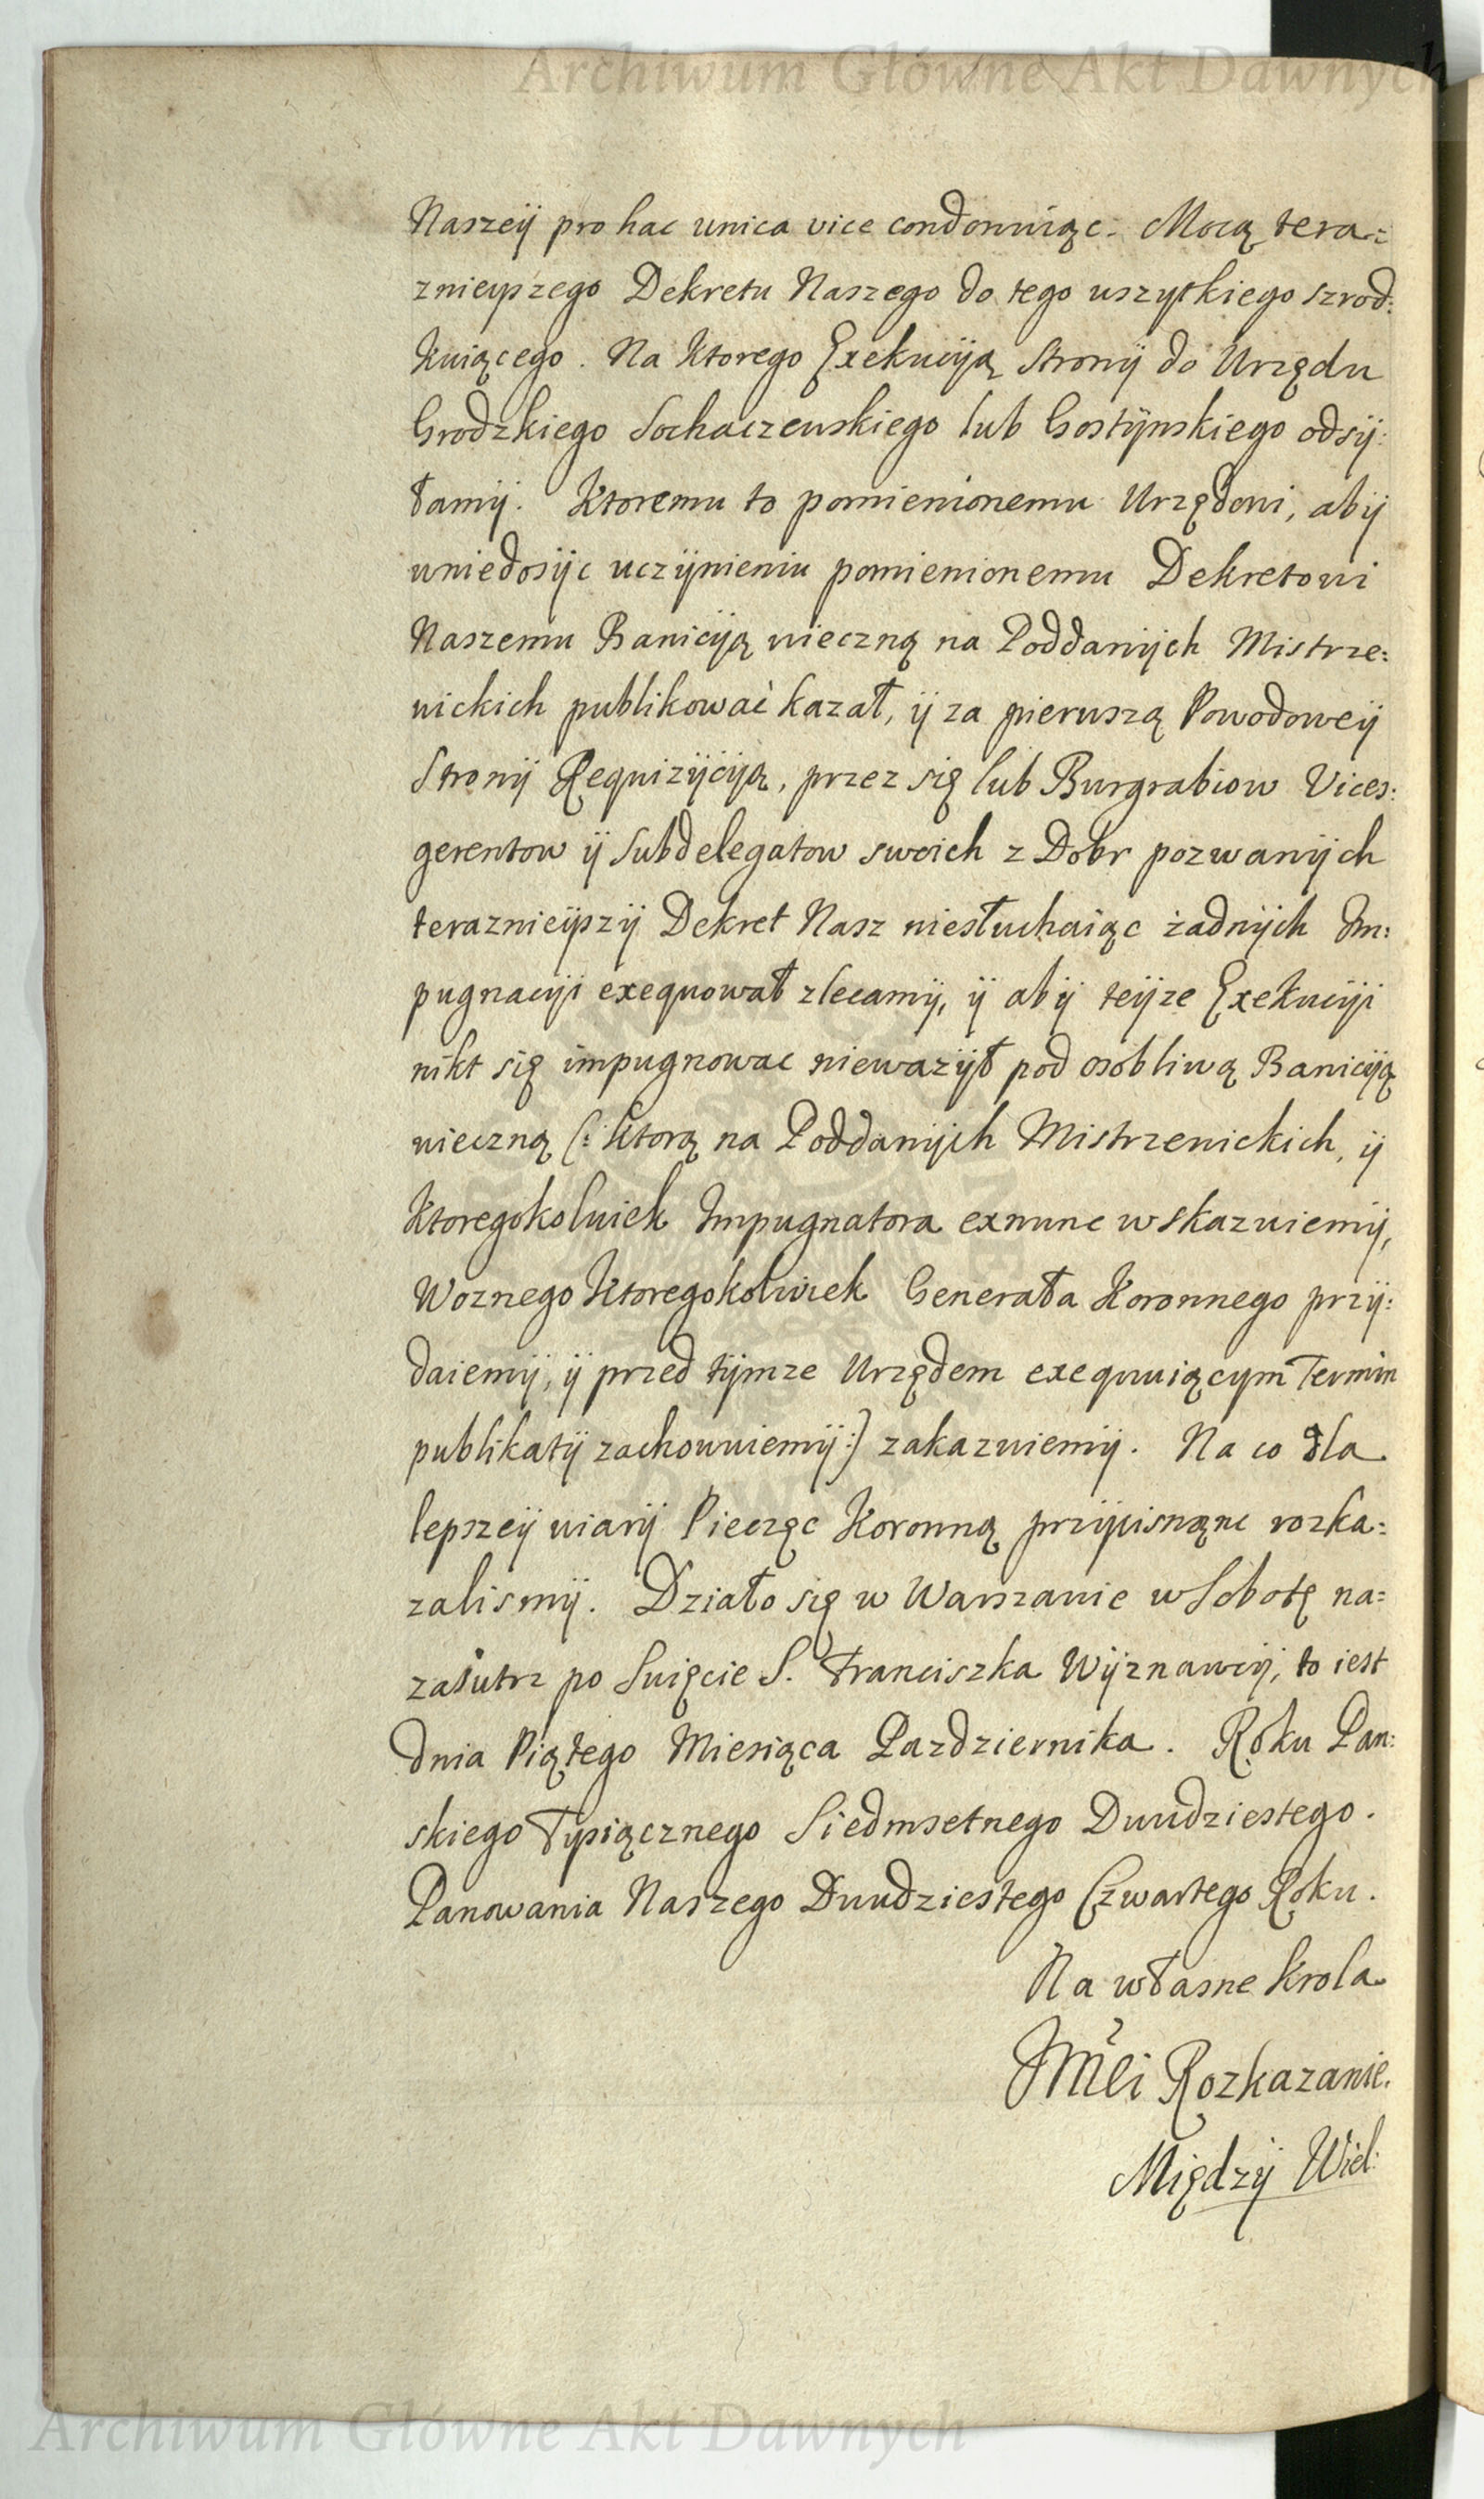 Archiwum Główne Akt Dawnych
Naszeÿ pro hac unica vice condonuiąc. Mocą tera=
znieÿszego Dekretu Naszego do tego wszytkiego szrod:
kuiącego. Na ktorego Exekucÿią Stronÿ do Urzędu
Grodzkiego Sochaczewskiego lub Gostÿnskiego odsÿ:
łamÿ. Ktoremu to pomienionemu Urzędowi, abÿ
wniedosÿc uczÿnieniu pomienionemu Dekretowi
Naszemu Banicÿią wieczną na Poddanÿch Mistrze:
wickich publikować kazał, ÿ za pierwszą Powodoweÿ
Stronÿ Requizÿcÿią, przez się lub Burgrabiow Vices:
gerentow ÿ Subdelegatow swoich z Dobr pozwanÿch
teraznieÿszÿ Dekret Nasz niesłuchaiąc żadnÿch Im:
pugnacÿi exequował zlecamÿ, ÿ abÿ teÿze Exekucÿi
nikt się impugnowac niewazÿł pod osobliwą Banicÿią
wieczną (: ktorą na Poddanÿch Mistrzewickich, ÿ
ktoregokolwiek Impugnatora exnunc wskazuiemÿ,
Woznego ktoregokolwiek Generała Koronnego przÿ:
daiemÿ, ÿ przed tÿmze Urzędem exequuiącym Termin
publikatÿ zachowuiemÿ:) zakazuiemÿ. Na co dla
lepszeÿ wiarÿ Pieczęc Koronną przÿcisnąnc rozka=
zalismÿ. Działo się w Warszawie w Sobotę na=
zaiutrz po Swięcie S. Franciszka Wÿznawcÿ, to iest
dnia Piątego Miesiąca Pazdziernika. Roku Pan:
skiego Tysiącznego Siedmsetnego Dwudziestego.
Panowania Naszego Dwudziestego Czwartego Roku.
Na własne Krola
JMći Rozkazanie.
Międzÿ Wiel:
Archiwum Główne Akt Dawnych